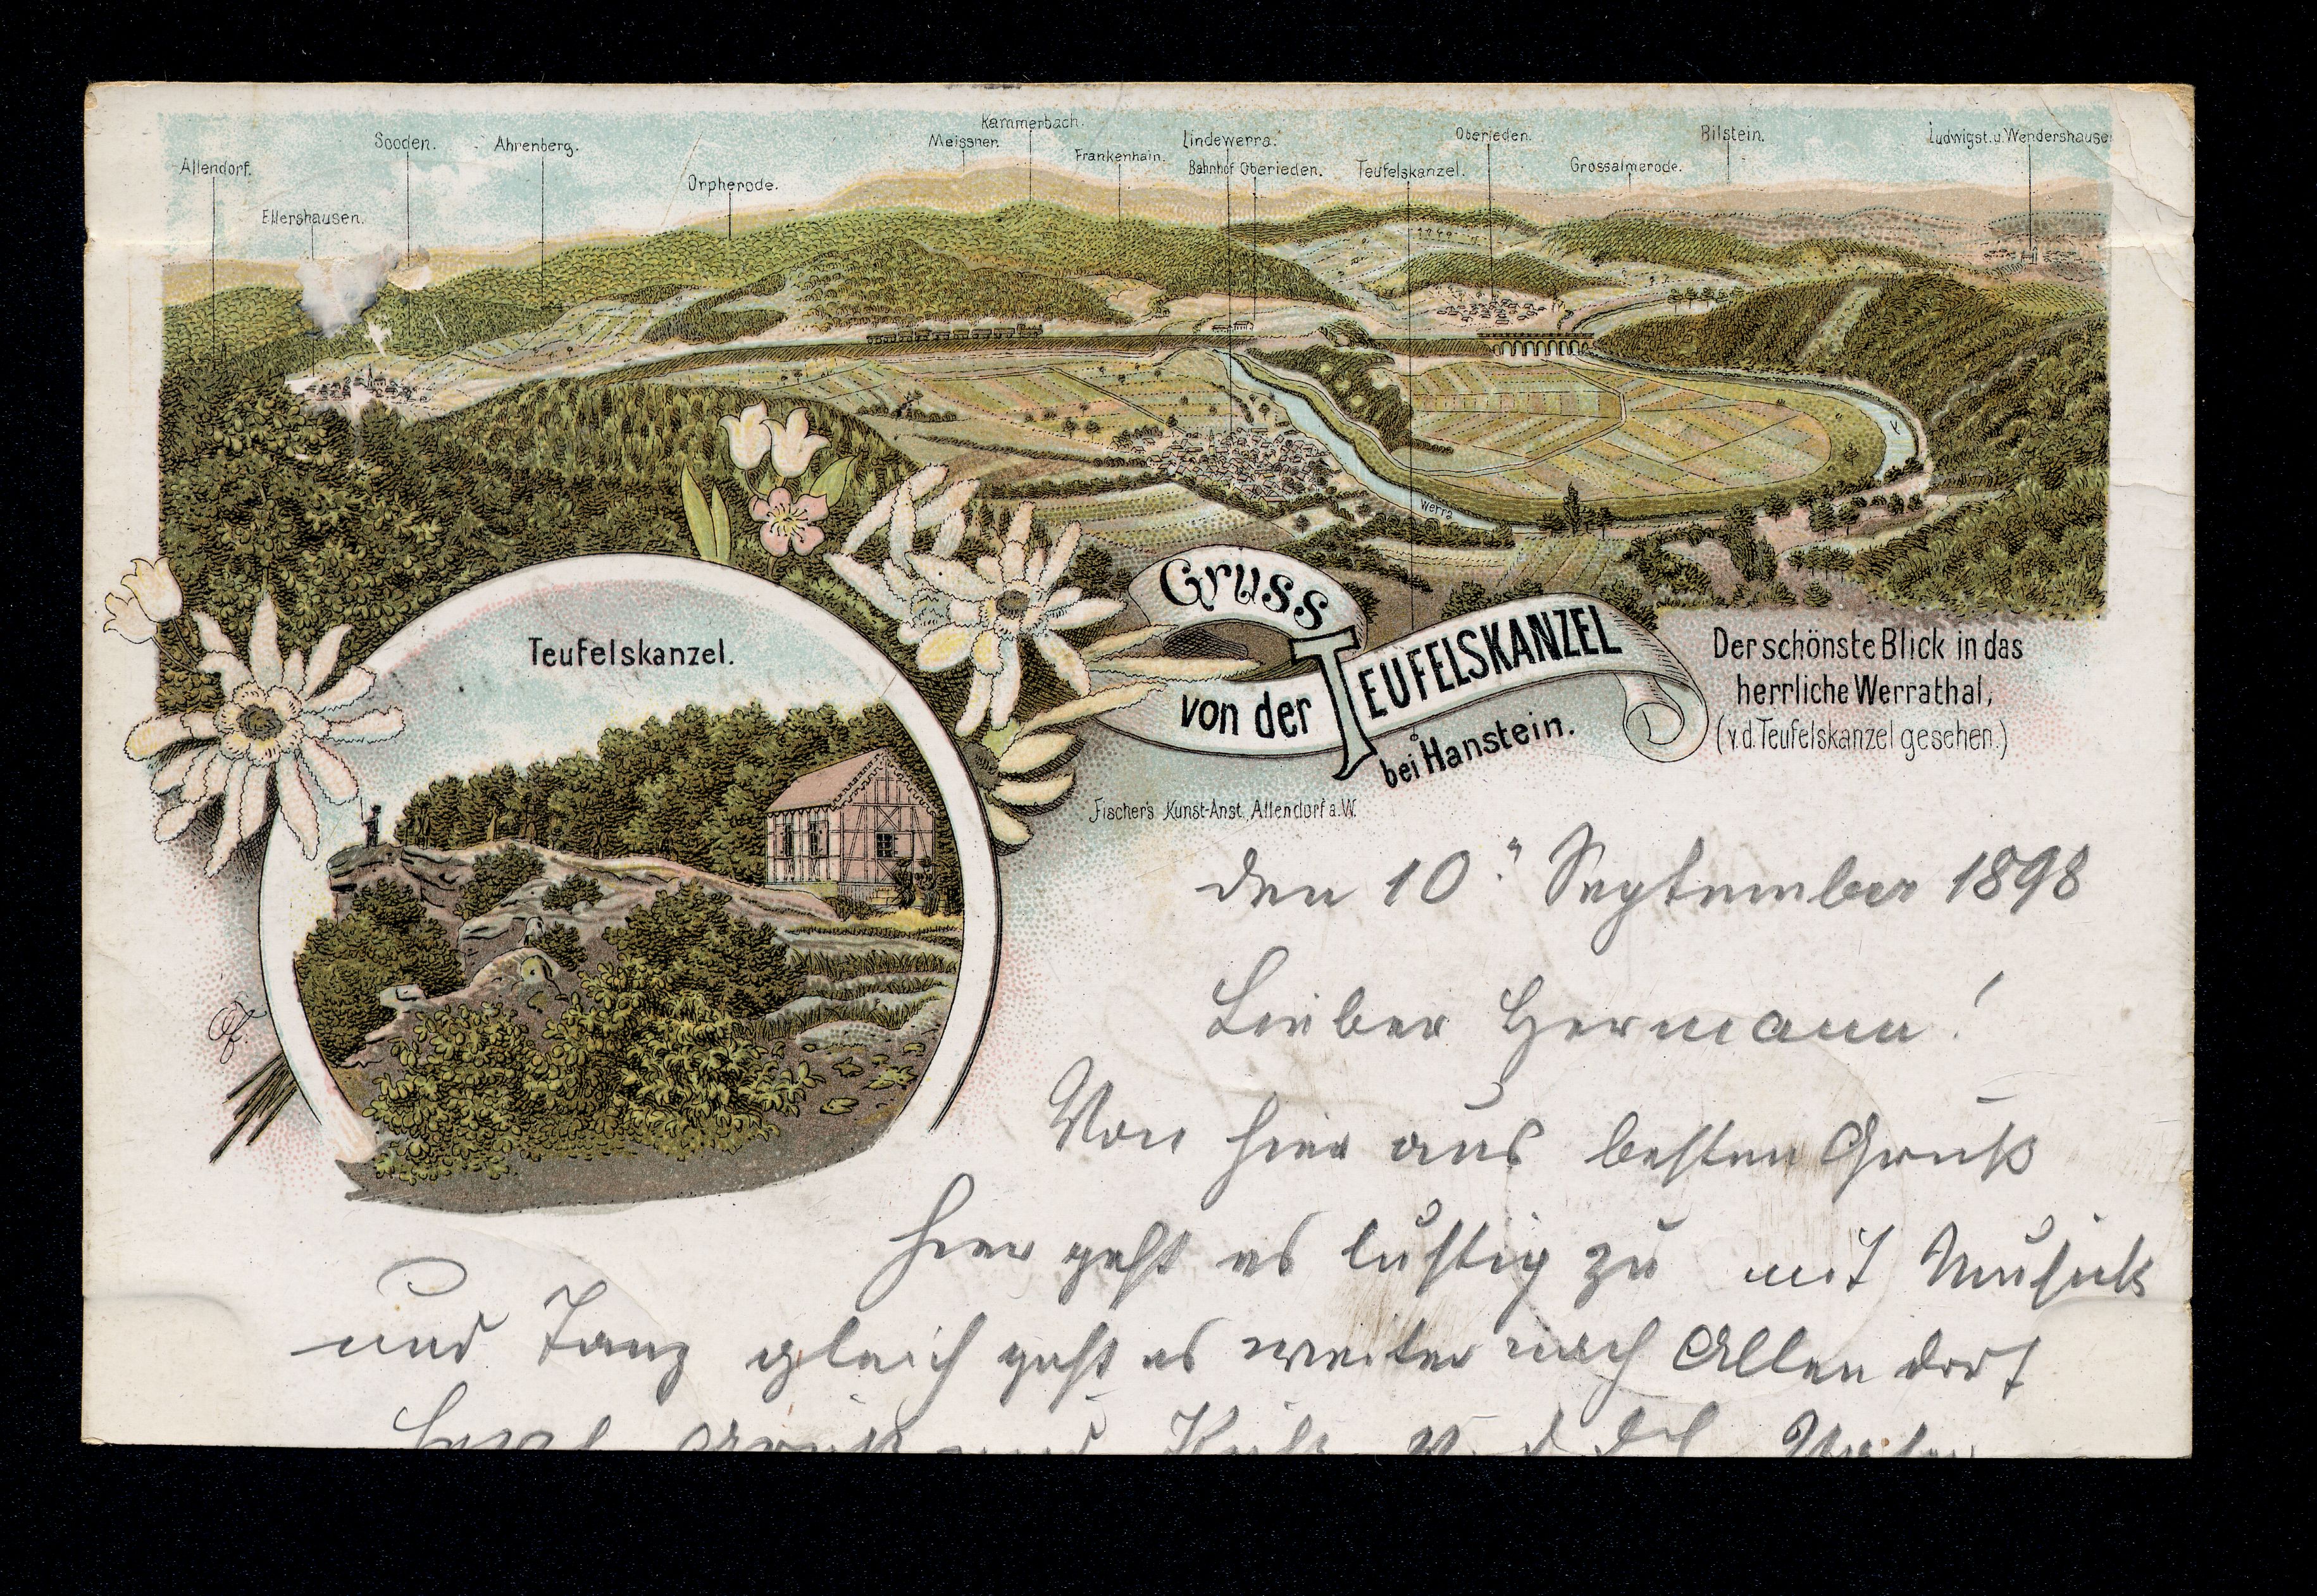 Kammerbach.
Sooden.
Ahrenberg.
Meissner.
Lindewerra.
Oberieden.
Bilstein.
Ludwigst. u. Wendershause
Allendorf.
Frankenhain.
Bahnhof Oberieden.
Teufelskanzel.
Grossalmerode.
Orpherode.
Ellershausen.
Werra
Gruss
von der TEUFELSKANZEL
bei Hanstein.
Der schönste Blick in das
herrliche Werrathal,
(v. d. Teufelskanzel gesehen.)
Teufelskanzel.
Fischer's Kunst-Anst. Allendorf a. W.
den 10. September 1898
Lieber Hermann!
Von hier aus besten Gruß
hier geht es lustig zu mit Musick
und Tanz gleich geht es weiter nach Allendorf
Gruß und